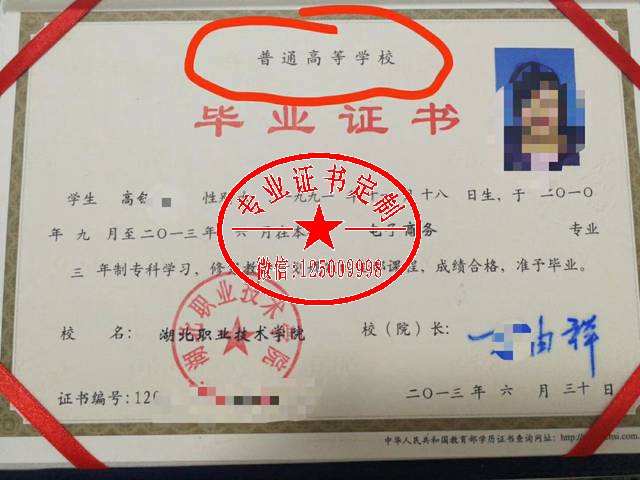 普通高等学校
毕业证书
学生 高 性别 一九九一年十一月十八日生，于二〇一〇
年九月至二〇一三年六月在本 电子商务 专业
三年制专科学习，修 教 课程，成绩合格，准予毕业。
专业证书定制
微信:125009998
校 名： 湖北职业技术学院
校（院）长：
湖北职业技术学院
由祥
证书编号:12
二〇一三年 六 月 三十 日
中华人民共和国教育部学历证书查询网址：http://